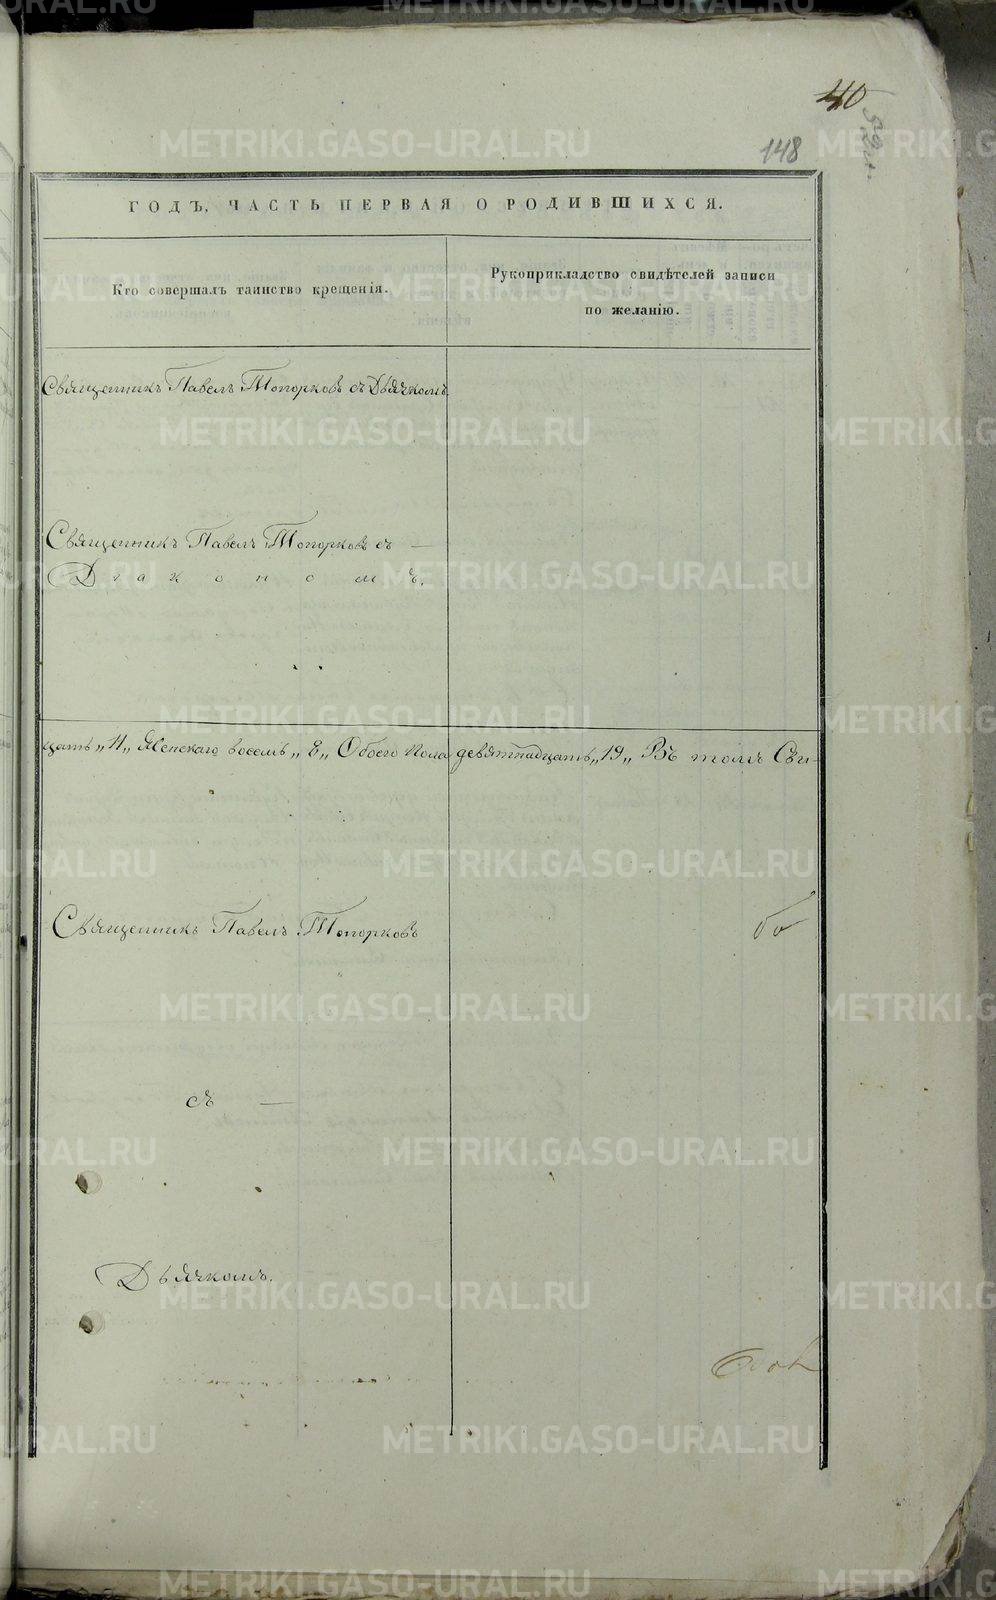 40
148
ГОДЪ, ЧАСТЬ ПЕРВАЯ О РОДИВШИХСЯ.
Кто совершалъ таинство крещенія.
Рукоприкладство свидѣтелей записи
по желанію.
Священникъ Павелъ Топорковъ съ Дьячкомъ
Священникъ Павелъ Топорковъ съ —
Діакономъ.
цать „11„ Женскаго восемь „8„ Обоего пола девятнадцать „19„ Въ томъ Сви-
Священникъ Павелъ Топорковъ
съ —
Дьячкомъ.
METRIKI.GASO-URAL.RU